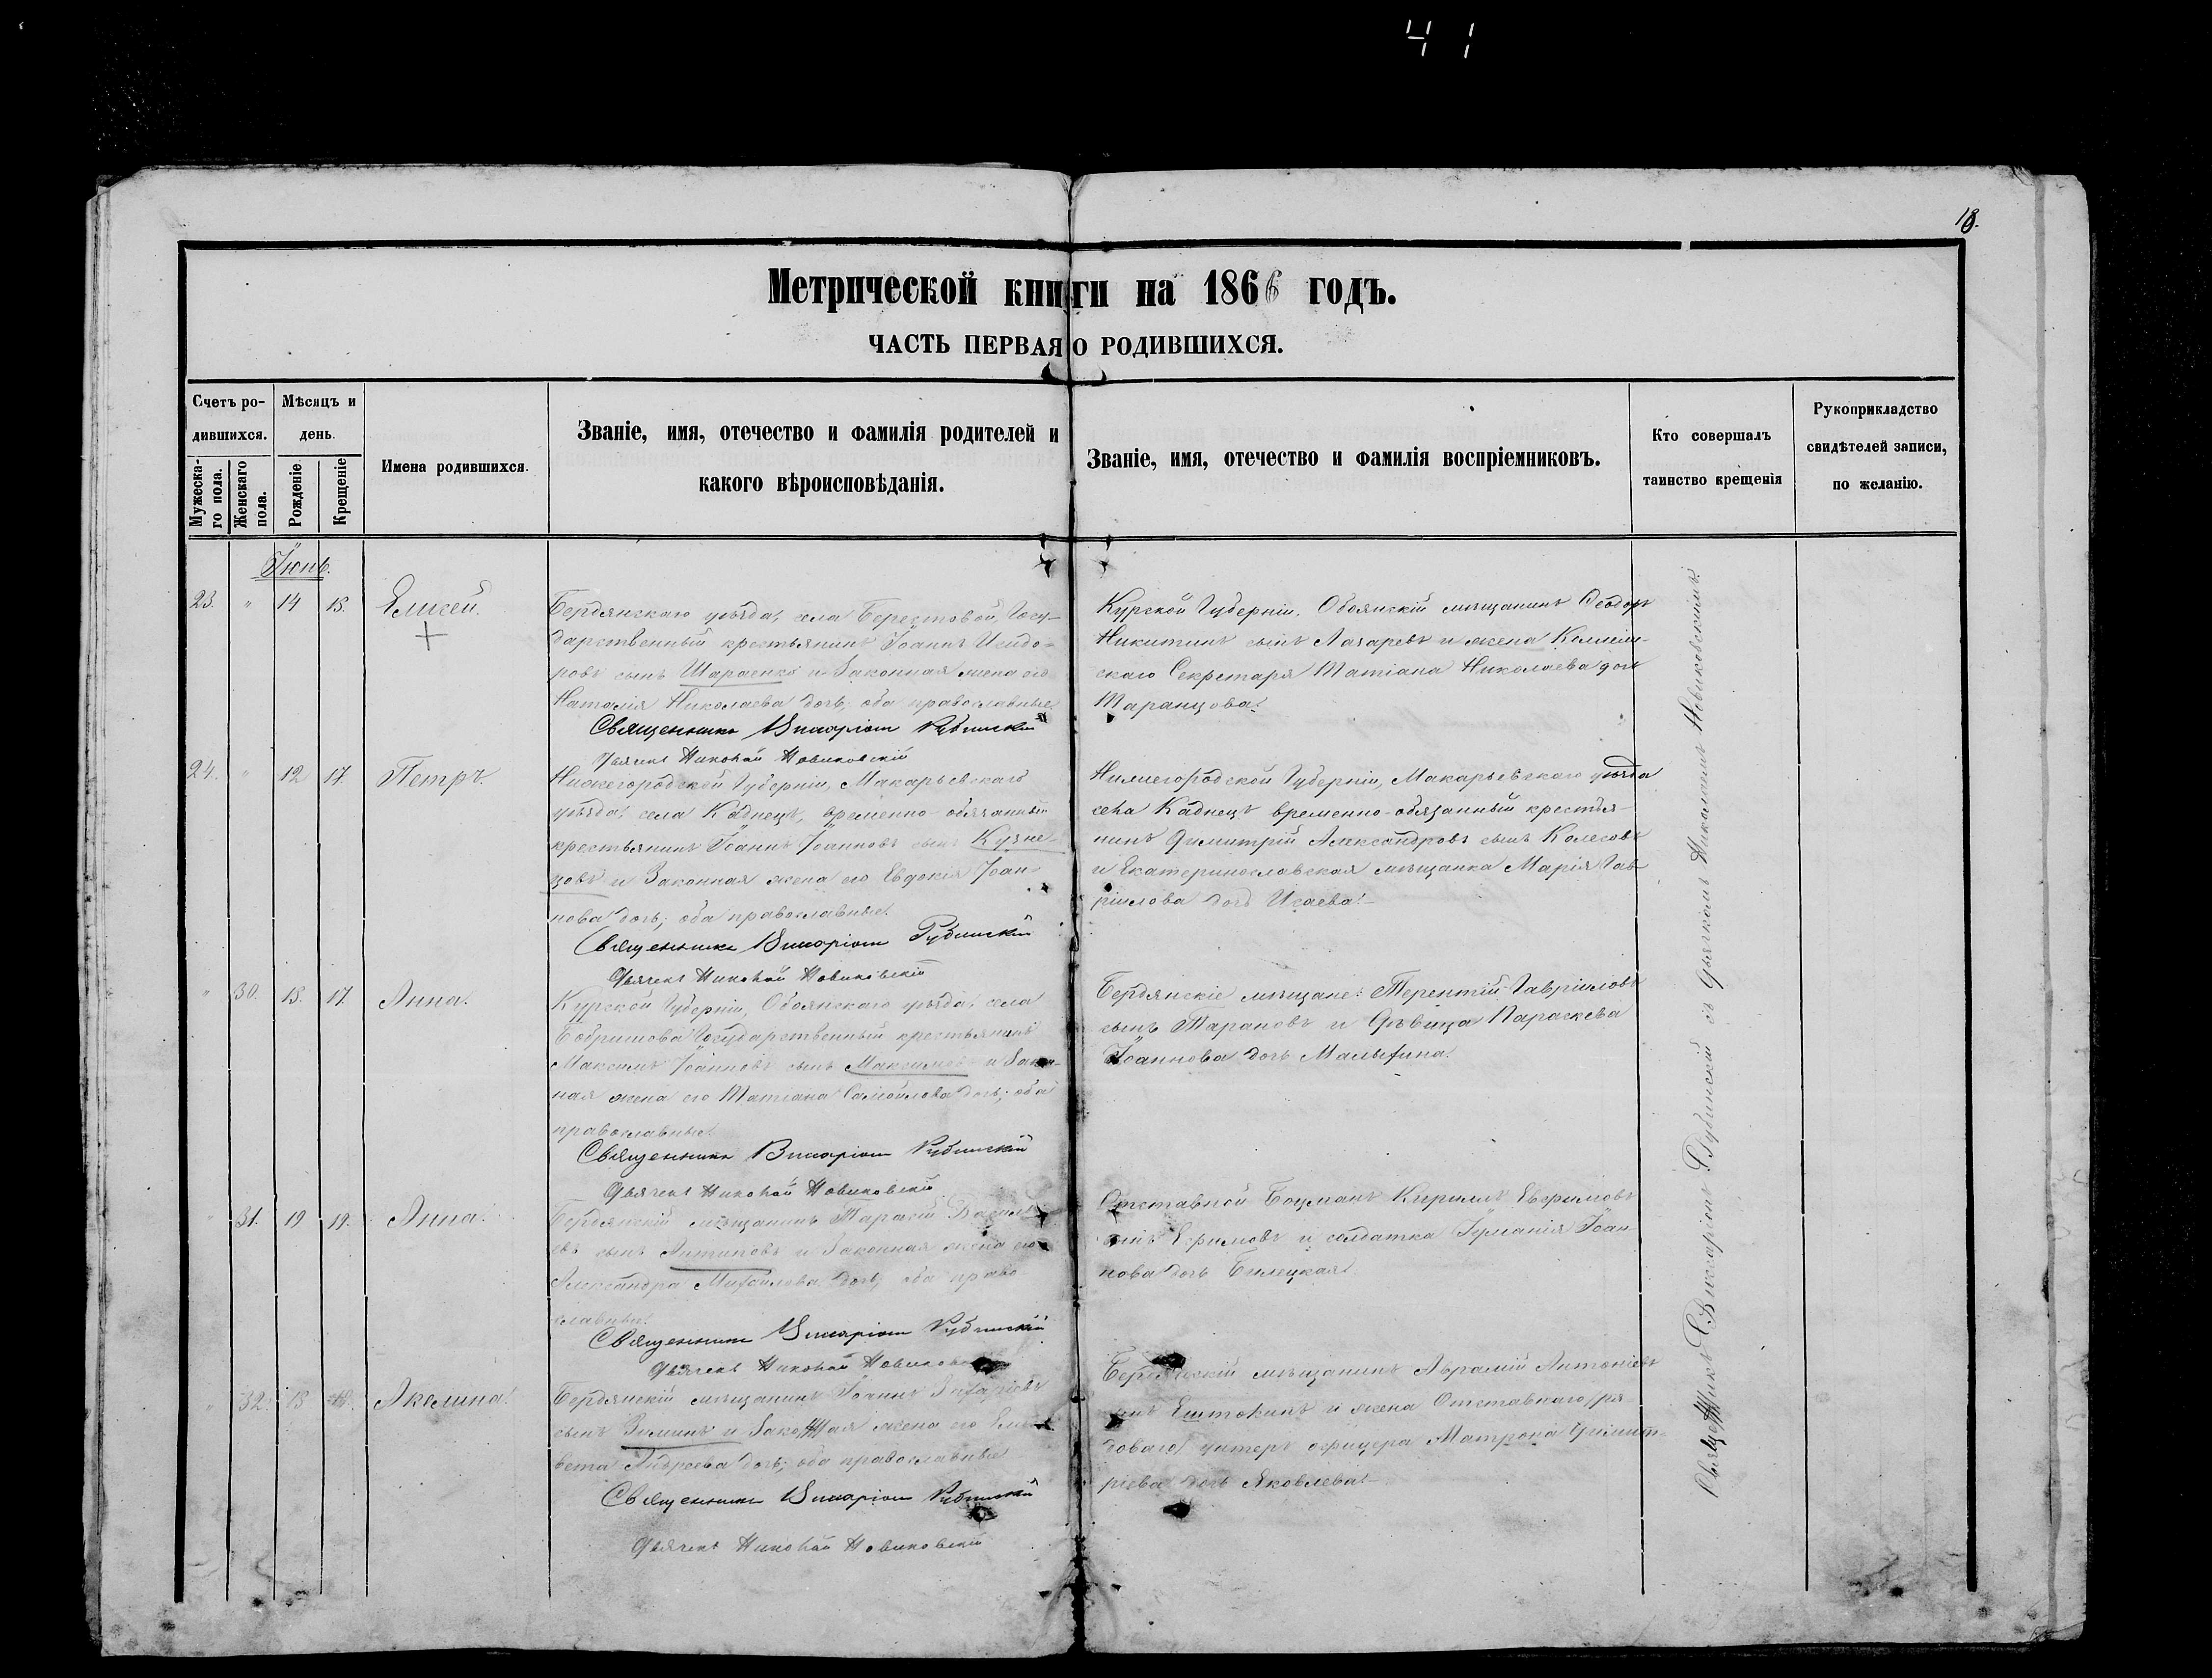 41
18.
Метрической книги на 1866 годъ.
ЧАСТЬ ПЕРВАЯ О РОДИВШИХСЯ.
Счетъ ро-
дившихся.
Мужеска-
го пола.
Женскаго
пола.
Мѣсяцъ и
день.
Рожденіе.
Крещеніе
Имена родившихся.
Званіе, имя, отечество и фамилія родителей и
какого вѣроисповѣданія.
Званіе, имя, отечество и фамилія воспріемниковъ.
Кто совершалъ
таинство крещенія
Рукоприкладство
свидѣтелей записи,
по желанію.
Іюнь.
23. " 14 15. Елисей.
Бердянскаго уѣзда, села Берестовой, Госу-
дарственный крестьянинъ Іоаннъ Исидо-
ровъ сынъ Шараенко и Законная жена его
Наталія Николаева дочь; оба православные.
Священникъ Викаріонъ Рубинскій
Дьячекъ Николай Новиковскій
Курской Губерніи, Обоянскій мѣщанинъ Феодоръ
Никитинъ сынъ Лазаревъ и жена Коллеж-
скаго Секретаря Татіана Николаева дочь
Таранцова.
24. " 12 17. Петръ.
Нижегородской Губерніи, Макарьевскаго
уѣзда, села Каднецъ, временно-обязанный
крестьянинъ Іоаннъ Іоанновъ сынъ Кузне-
цовъ и Законная жена его Евдокія Іоан-
нова дочь; оба православные.
Священникъ Викаріонъ Рубинскій
Дьячекъ Николай Новиковскій
Нижегородской Губерніи, Макарьевскаго уѣзда
села Каднецъ временно-обязанный крестья-
нинъ Димитрій Александровъ сынъ Колесовъ
и Екатеринославская мѣщанка Марія Гав-
ріилова дочь Исаева.
" 30. 15. 17. Анна.
Курской Губерніи, Обоянскаго уѣзда, села
Бобрышова Государственный крестьянинъ
Максимъ Іоанновъ сынъ Максимовъ и Закон-
ная жена его Татіана Самойлова дочь; оба
православные.
Священникъ Викаріонъ Рубинскій
Дьячекъ Николай Новиковскій
Бердянскіе мѣщане: Терентій Гавріиловъ
сынъ Тарановъ и Дѣвица Параскева
Іоаннова дочь Малыхина.
" 31. 19 19. Анна.
Бердянскій мѣщанинъ Тарасій Василь-
евъ сынъ Антиповъ и Законная жена его
Александра Михайлова дочь; оба право
славные.
Священникъ Викаріонъ Рубинскій
Дьячекъ Николай Новиковскій
Отставной Боцманъ Кириллъ Ефимовъ
сынъ Ефимовъ и солдатка Іуліанія Іоан
нова дочь Билецкая.
" 32. 13 Акилина.
Бердянскій мѣщанинъ Іоаннъ Захаріевъ
сынъ Зиминъ и Законная жена его Елиса
вета Андреева дочь; оба православные
Священникъ Викаріонъ Рубинскій
Дьячекъ Николай Новиковскій
Бердянскій мѣщанинъ Аврамій Антоніевъ
сынъ и жена Отставнаго ря
доваго унтеръ офицера Матрона Димит-
ріева дочь Яковлева.
Священникъ Викаріонъ Рубинскій съ Дьячкомъ Николаемъ Новиковскимъ.